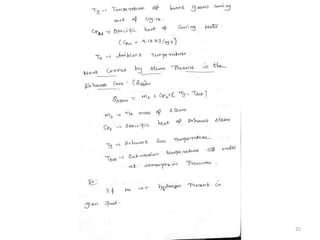 Tg → Temperature of burnt gases coming
out of engine.
Cpw → Specific heat of cooling water
(Cpw = 4.18 kJ/kg k)
Ta → Ambient Temperature.
Heat Carried by Steam Present in the
Exhaust Gas: (Qsteam)
Qsteam = ms × Cps × ( Tg - Tsat)
ms → The mass of Steam
Cps → Specific heat of Exhaust Steam
Tg → Exhaust Gas Temperature
Tsat → Saturation temperature of water
at atmospheric Pressure.
If m is hydrogen Present in
given fuel.
25